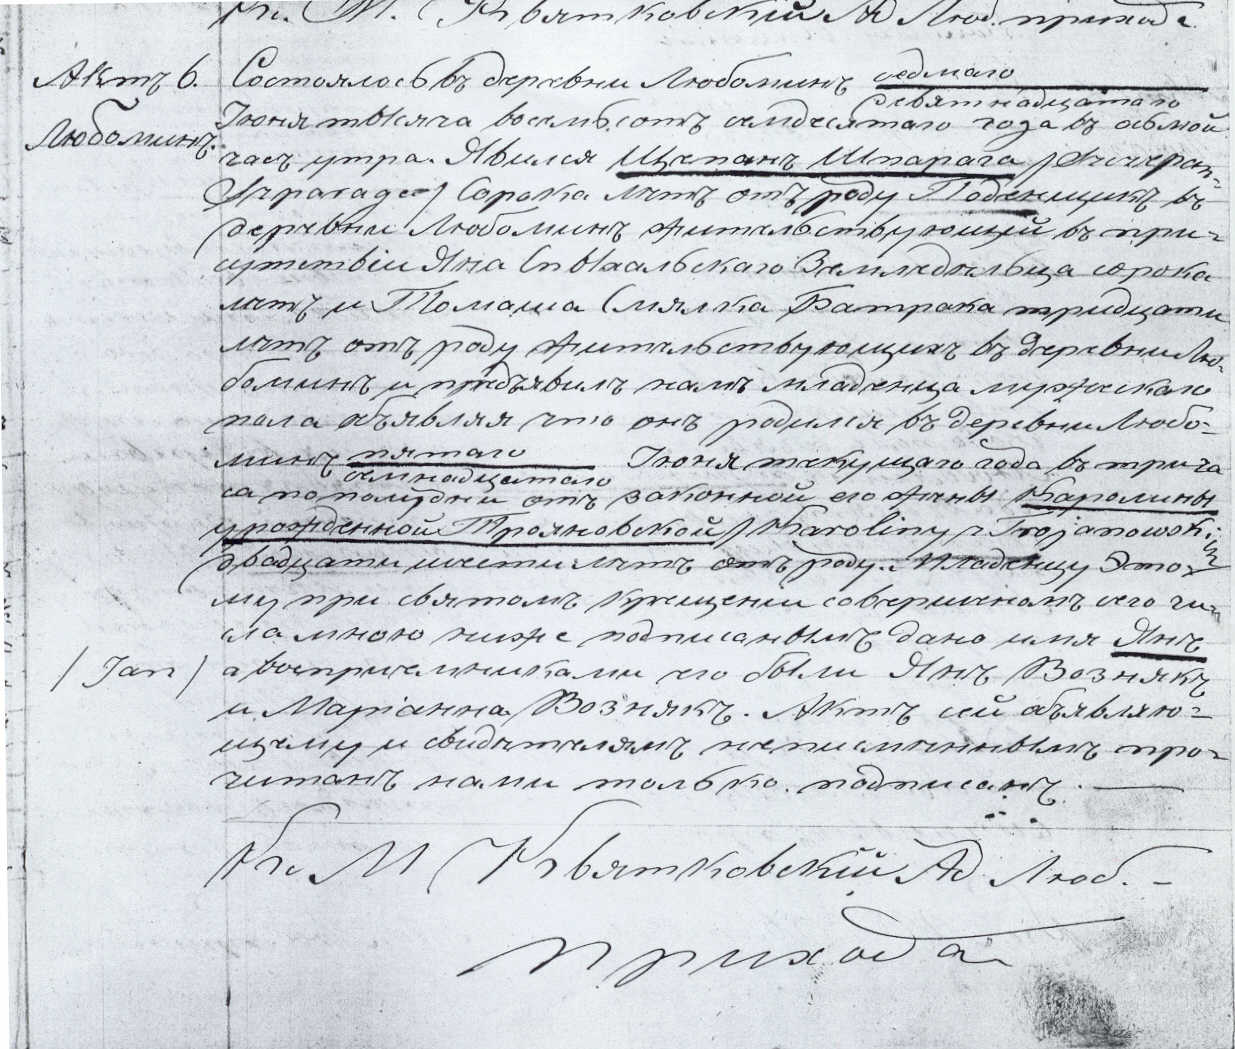 Кс. М. Квятковскій Ад Люб. прихода
Актъ 6.
Любоминъ.
Состоялось въ деревни Любоминъ седмаго
девятнадцатаго
Іюня тысяча восемьсотъ семдесятаго года въ осьмой
часъ утра. Явился Щепанъ Шпарага /Szczepan
Szparaga/ Сорока лѣтъ отъ роду Поденщикъ въ
деревни Любоминъ жительствующій въ при-
сутствіи Яна Сп Земледѣльца сорока
лѣтъ и Томаша Смялка Батрака тридцати
лѣтъ отъ роду жительствующихъ въ деревни Лю-
боминъ и предъявилъ намъ младенца мужескаго
пола объявляя что онъ родился въ деревни Любо-
минъ пятаго Іюня текущаго года въ три ча
семнадцатаго
са пополудни отъ законной его жены Каролины
урожденной Трояновской /Karoliny z Trojanowskich/
двадцати шести лѣтъ отъ роду. Младенцу Это-
му при святомъ крещеніи совершеномъ сего чи-
сла мною ниже подписанымъ дано имя Янъ
/Jan/
а воспріемниками его были Янъ Вознякъ
и Маріанна Вознякъ. Актъ сей объявляю-
щему и свидѣтелямъ неписменнымъ про-
читанъ нами только подписанъ.
Кс. М Квятковскій Ад. Люб. -
прихода